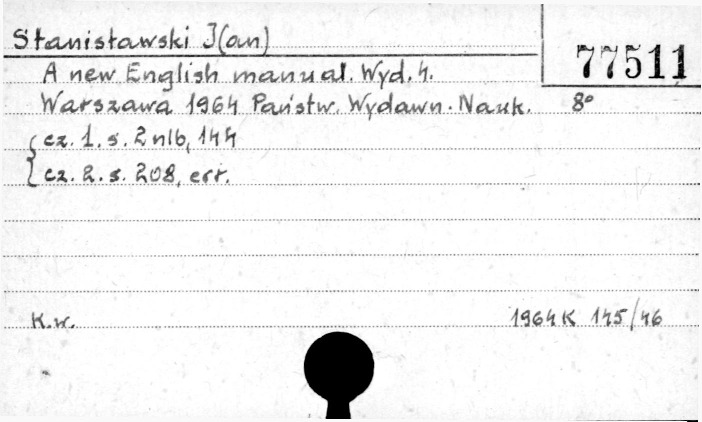 Stanisławski J(an)
77511
A new English manual. Wyd. 4.
Warszawa 1964 Państw. Wydawn. Nauk. 8°
cz. 1. s. 2 nlb, 144
cz. 2. s. 208, err.
K.w. 1964 K 145/46